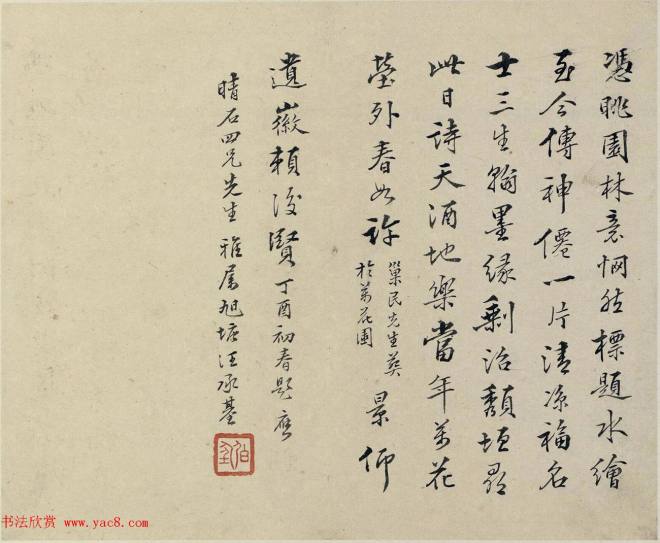 憑眺園林意惘然標題水繪
至今傳神僊一片清涼福名
士三生翰墨緣剩沿頹垣尋
此日詩天酒地樂當年萬花
塋外春如許巢民先生葬
於萬花圃景仰
遺徽賴後賢丁酉初春題應
晴石四兄先生雅屬旭塘汪承基
书法欣赏 www.yac8.com